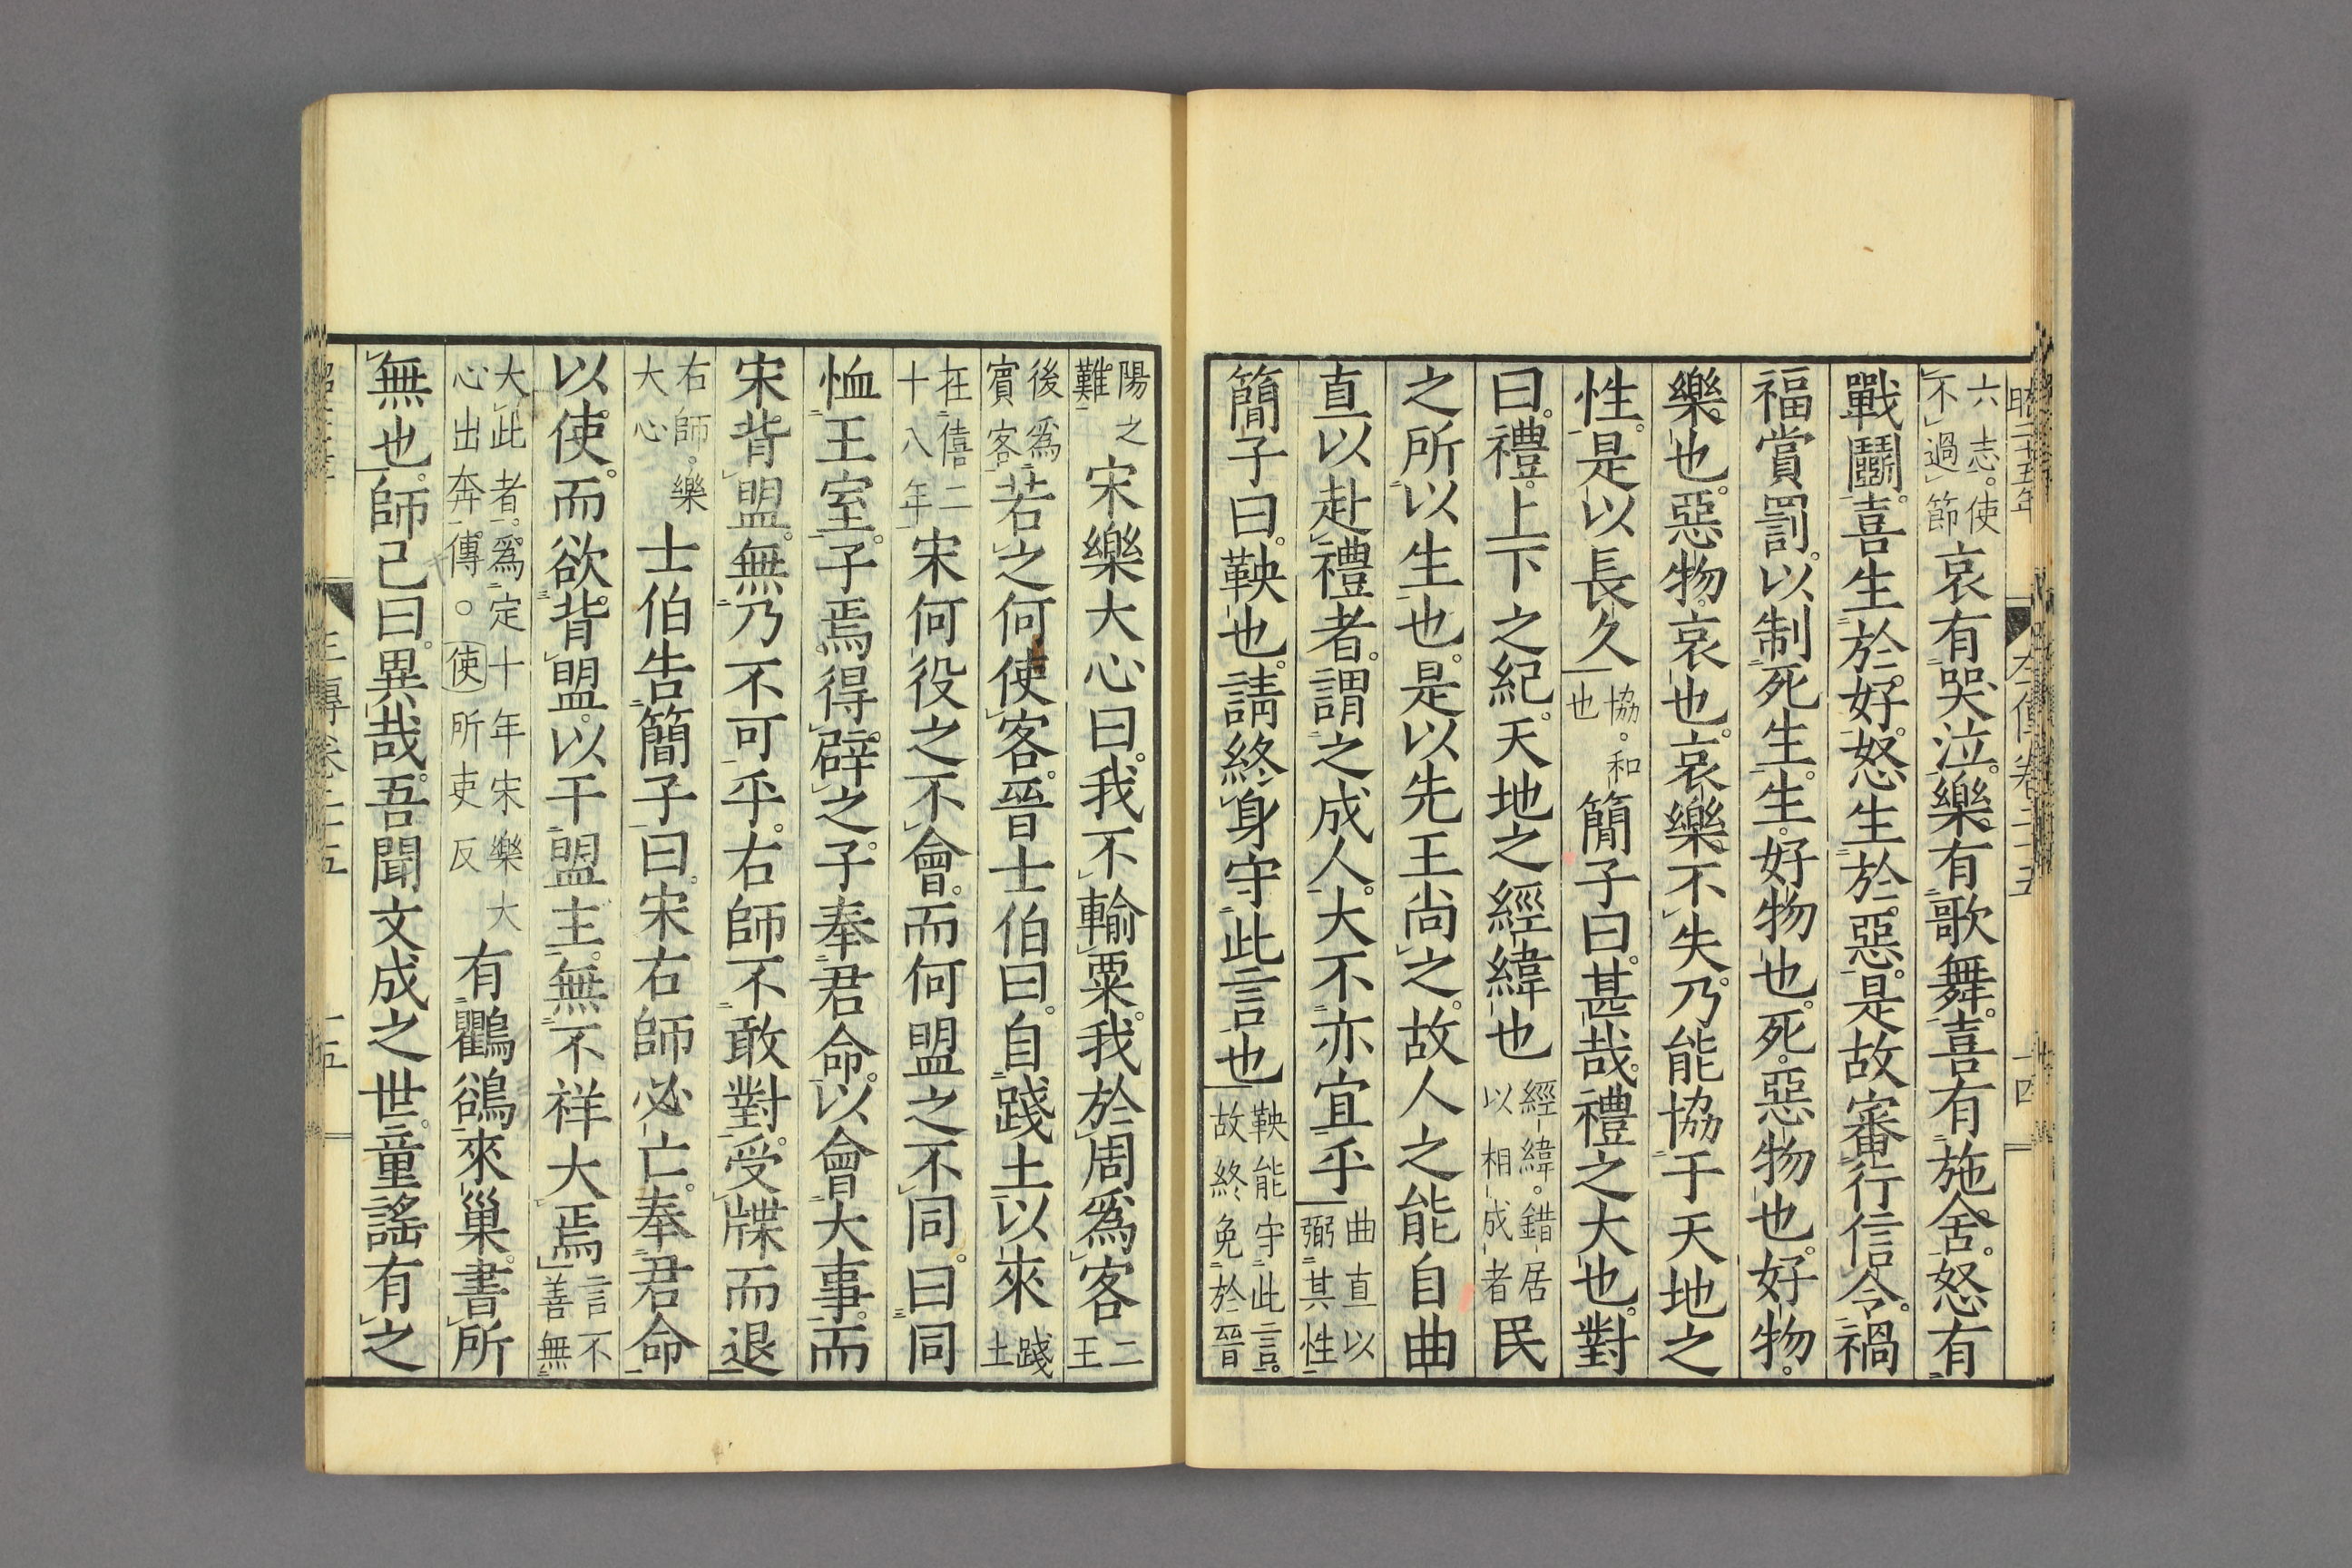 昭二十五年 左傳卷二十五 十四
六志。使不過節哀有哭泣。樂有歌舞。喜有施舍。怒有
戰鬪。喜生於好。怒生於惡。是故審行信令。禍
福賞罰。以制死生。生。好物也。死。惡物也。好物。
樂也。惡物。哀也。哀樂不失。乃能協于天地之
性。是以長久協。和也簡子曰。甚哉。禮之大也。對
曰。禮。上下之紀。天地之經緯也經緯。錯居以相成者民
之所以生也。是以先王尚之。故人之能自曲
直以赴禮者。謂之成人。大不亦宜乎曲直以弼其性
簡子曰。鞅也。請終身守此言也鞅能守此言。故終免於晉
陽之難宋樂大心曰。我不輸粟。我於周爲客二王
後爲賓客若之何使客。晉士伯曰。自踐土以來踐土
在僖二十八年宋何役之不會。而何盟之不同。曰同
恤王室。子焉得辟之。子奉君命。以會大事。而
宋背盟。無乃不可乎。右師不敢對。受牒而退
右師。樂大心士伯告簡子曰。宋右師必亡。奉君命
以使。而欲背盟。以干盟主。無不祥大焉言不善無
大此者。爲定十年宋樂大心出奔傳。○使所吏反有鸜鵒來巢。書所
無也。師己曰。異哉。吾聞文成之世。童謠有之